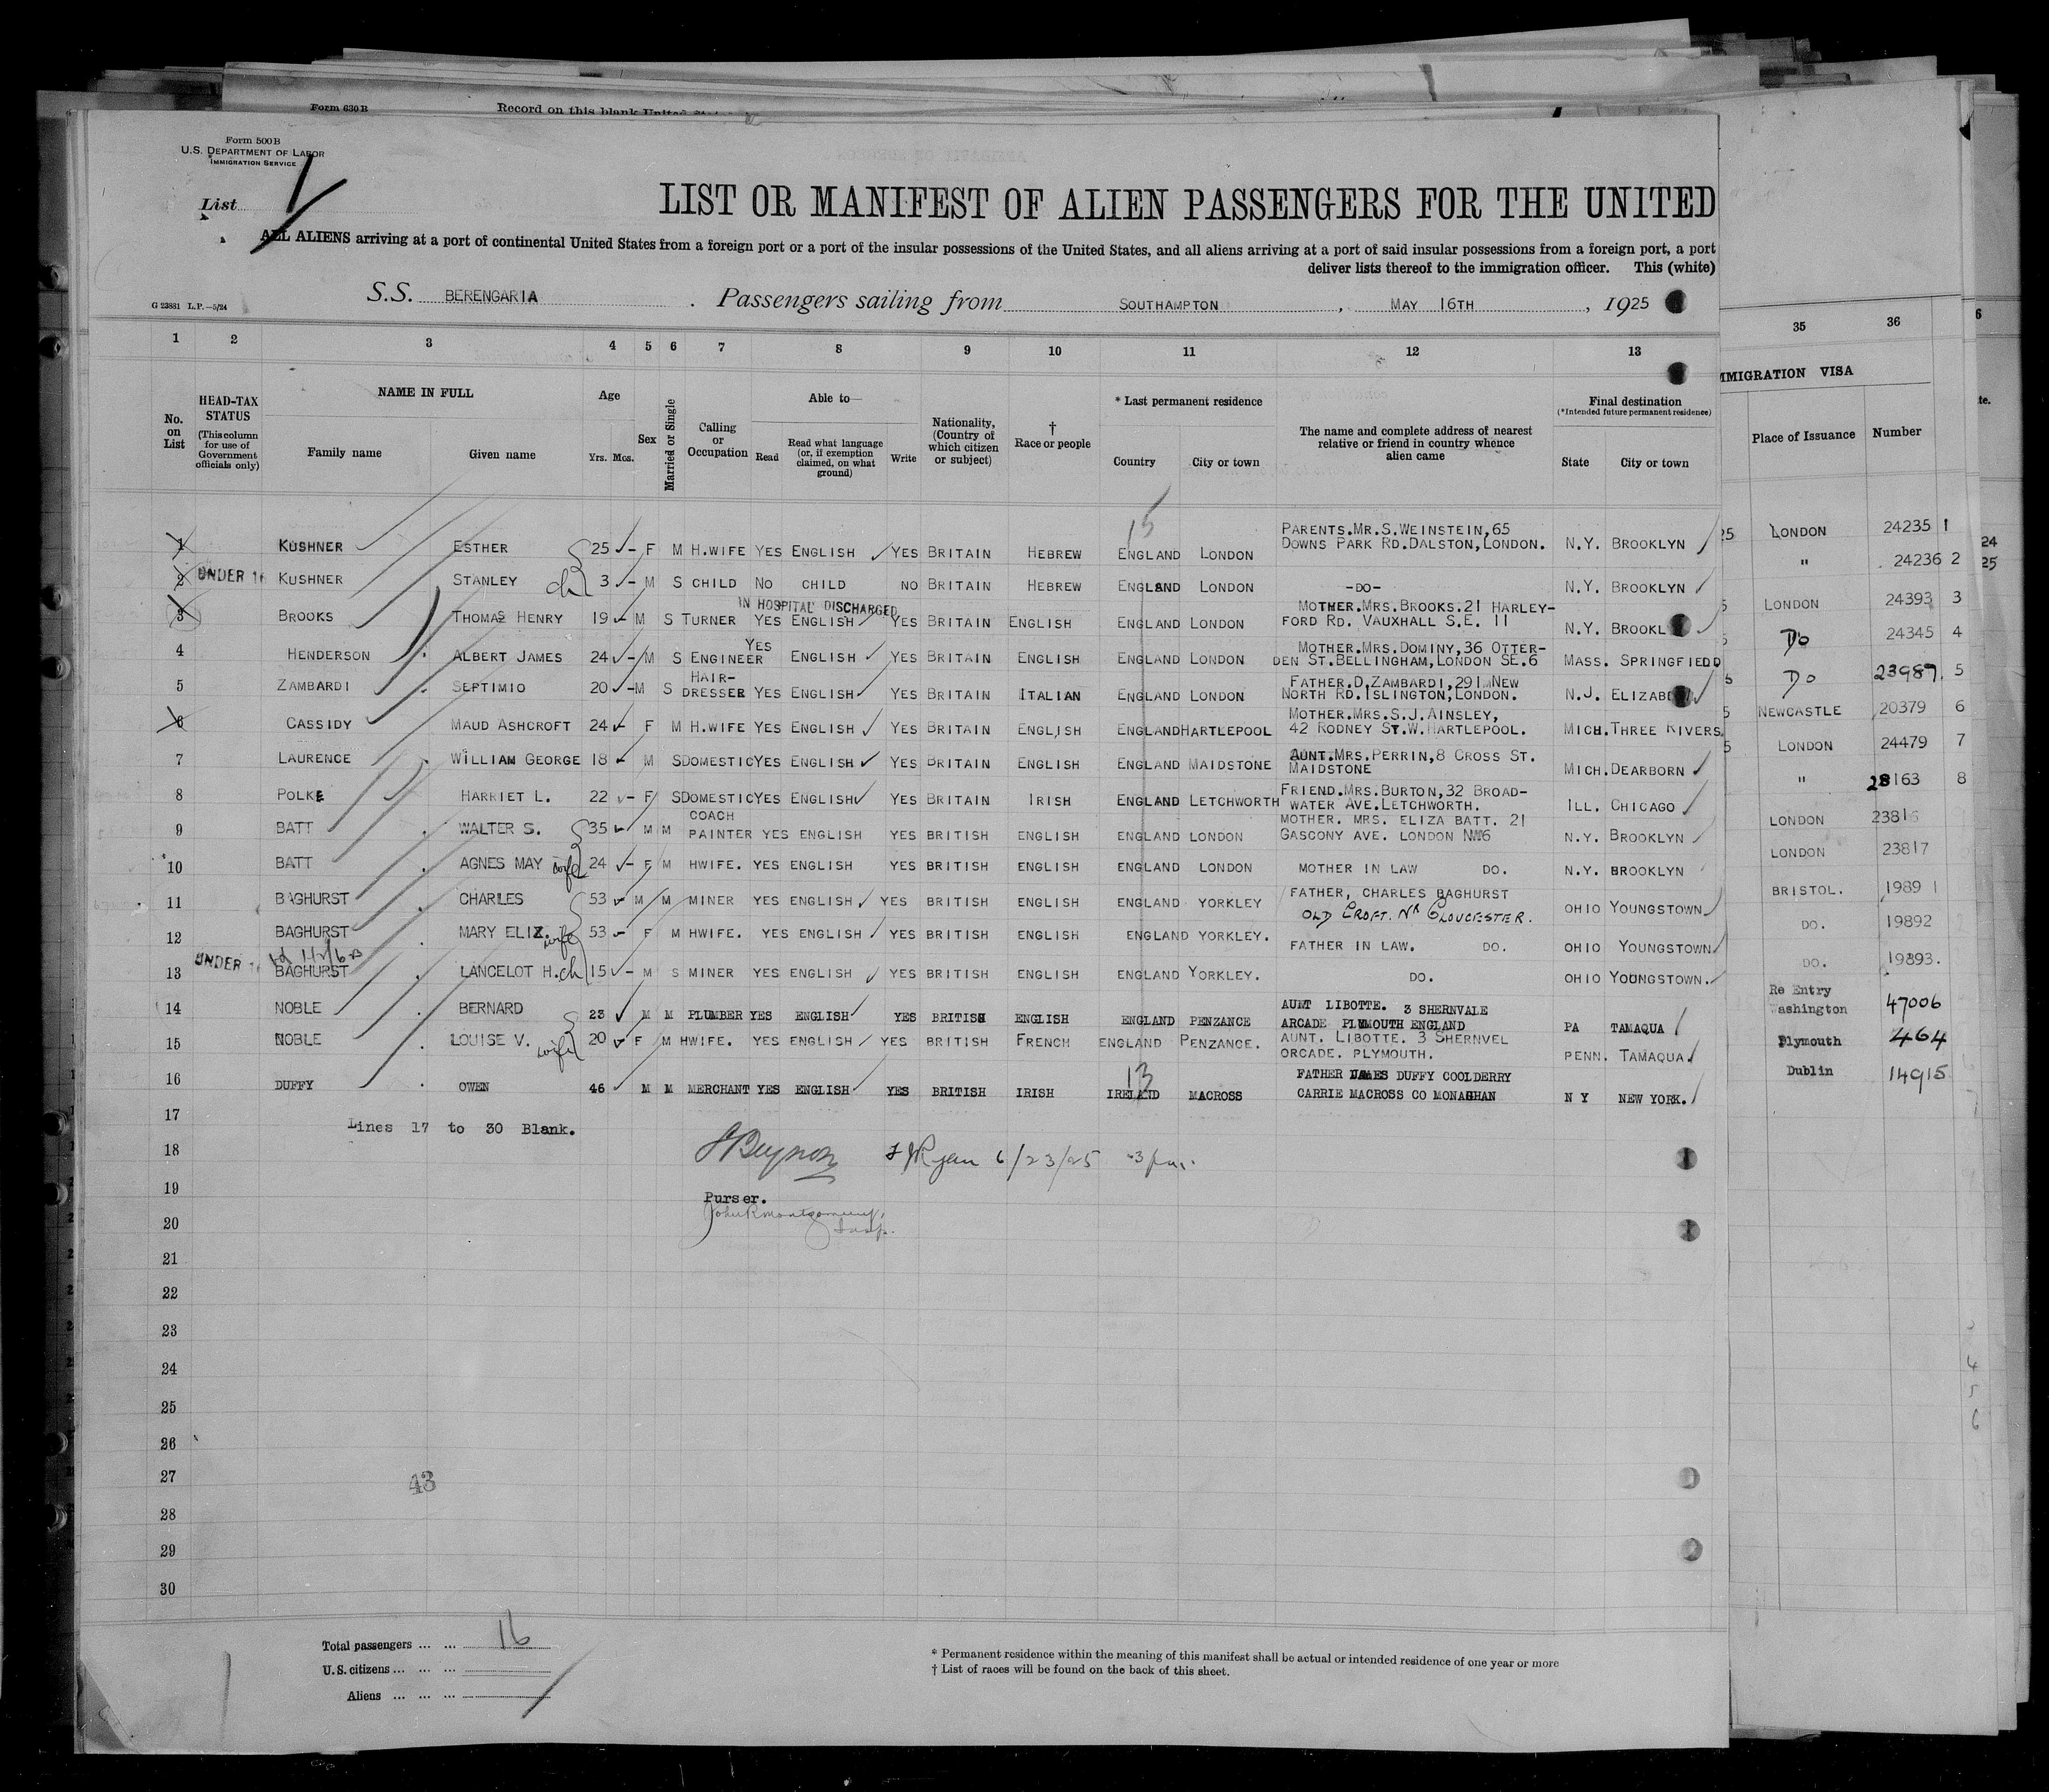 Form 630 B Record on this blank United
Form 500 B
U.S. DEPARTMENT OF LABOR
IMMIGRATION SERVICE
List
LIST OR MANIFEST OF ALIEN PASSENGERS FOR THE UNITED
ALL ALIENS arriving at a port of continental United States from a foreign port or a port of the insular possessions of the United States, and all aliens arriving at a port of said insular possessions from a foreign port, a port
deliver lists thereof to the immigration officer. This (white)
S.S. BERENGARIA . Passengers sailing from SOUTHAMPTON , MAY 16TH , 1925
G 23881 L.P.—5/24
1 2 3 4 5 6 7 8 9 10 11 12 13 35 36 6
No. on List
HEAD-TAX STATUS (This column for use of Government officials only)
NAME IN FULL
Family name Given name
Age
Yrs. Mos.
Sex
Married or Single
Calling or Occupation
Able to—
Read Read what language (or, if exemption claimed, on what ground) Write
Nationality, (Country of which citizen or subject)
† Race or people
* Last permanent residence
Country City or town
The name and complete address of nearest relative or friend in country whence alien came
Final destination
(*Intended future permanent residence)
State City or town
IMMIGRATION VISA
Place of Issuance Number
15
PARENTS.MR.S.WEINSTEIN,65
1 KUSHNER ESTHER 25 F M H.WIFE YES ENGLISH YES BRITAIN HEBREW ENGLAND LONDON DOWNS PARK RD.DALSTON,LONDON. N.Y. BROOKLYN 25 LONDON 24235 1
2 UNDER 16 KUSHNER STANLEY ch 3 M S CHILD NO CHILD NO BRITAIN HEBREW ENGLAND LONDON -DO- N.Y. BROOKLYN " 24236 2
IN HOSPITAL DISCHARGED
MOTHER.MRS.BROOKS.21 HARLEY-
3 BROOKS THOMAS HENRY 19 M S TURNER YES ENGLISH YES BRITAIN ENGLISH ENGLAND LONDON FORD RD. VAUXHALL S.E. 11 N.Y. BROOKL LONDON 24393 3
MOTHER.MRS.DOMINY,36 OTTER-
4 HENDERSON ALBERT JAMES 24 M S ENGINEER YES ENGLISH YES BRITAIN ENGLISH ENGLAND LONDON DEN ST.BELLINGHAM,LONDON SE.6 MASS. SPRINGFIELD Do 24345 4
HAIR- FATHER.D.ZAMBARDI,291 NEW
5 ZAMBARDI SEPTIMIO 20 M S DRESSER YES ENGLISH YES BRITAIN ITALIAN ENGLAND LONDON NORTH RD.ISLINGTON,LONDON. N.J. ELIZABE Do 23987. 5
MOTHER.MRS.S.J.AINSLEY,
6 CASSIDY MAUD ASHCROFT 24 F M H.WIFE YES ENGLISH YES BRITAIN ENGLISH ENGLAND HARTLEPOOL 42 RODNEY ST.W.HARTLEPOOL. MICH. THREE RIVERS NEWCASTLE 20379 6
AUNT.MRS.PERRIN,8 CROSS ST.
7 LAURENCE WILLIAM GEORGE 18 M S DOMESTIC YES ENGLISH YES BRITAIN ENGLISH ENGLAND MAIDSTONE MAIDSTONE MICH. DEARBORN LONDON 24479 7
FRIEND.MRS.BURTON,32 BROAD-
8 POLKE HARRIET L. 22 F S DOMESTIC YES ENGLISH YES BRITAIN IRISH ENGLAND LETCHWORTH WATER AVE.LETCHWORTH. ILL. CHICAGO " 23163 8
COACH MOTHER. MRS. ELIZA BATT. 21
9 BATT WALTER S. 35 M M PAINTER YES ENGLISH YES BRITISH ENGLISH ENGLAND LONDON GASCONY AVE. LONDON NW6 N.Y. BROOKLYN LONDON 23816
10 BATT AGNES MAY wife 24 F M HWIFE. YES ENGLISH YES BRITISH ENGLISH ENGLAND LONDON MOTHER IN LAW DO. N.Y. BROOKLYN LONDON 23817
11 BAGHURST CHARLES 53 M M MINER YES ENGLISH YES BRITISH ENGLISH ENGLAND YORKLEY FATHER, CHARLES BAGHURST OHIO YOUNGSTOWN BRISTOL. 19891
OLD CROFT. NR GLOUCESTER.
12 BAGHURST MARY ELIZ. wife 53 F M HWIFE. YES ENGLISH YES BRITISH ENGLISH ENGLAND YORKLEY. FATHER IN LAW. DO. OHIO YOUNGSTOWN DO. 19892
13 UNDER 16 BAGHURST LANCELOT H. ch 15 M S MINER YES ENGLISH YES BRITISH ENGLISH ENGLAND YORKLEY. DO. OHIO YOUNGSTOWN. DO. 19893.
AUNT LIBOTTE. 3 SHERNVALE Re Entry
14 NOBLE BERNARD 23 M M PLUMBER YES ENGLISH YES BRITISH ENGLISH ENGLAND PENZANCE ARCADE PLYMOUTH ENGLAND PA TAMAQUA Washington 47006
15 NOBLE LOUISE V. wife 20 F M HWIFE. YES ENGLISH YES BRITISH FRENCH ENGLAND PENZANCE. AUNT. LIBOTTE. 3 SHERNVEL PENN. TAMAQUA. Plymouth 464
ORCADE. PLYMOUTH.
13 FATHER JAMES DUFFY COOLDERRY
16 DUFFY OWEN 46 M M MERCHANT YES ENGLISH YES BRITISH IRISH IRELAND MACROSS CARRIE MACROSS CO MONAGHAN N Y NEW YORK. Dublin 14915
17
Lines 17 to 30 Blank.
18 Ryan 6/23/25 3 pm.
19 Purser.
John R Montgomery,
20 Insp.
21
22
23
24
25
26
27 43
28
29
30
Total passengers ... ... 16
U.S. citizens ... ... ...
Aliens ... ... ...
* Permanent residence within the meaning of this manifest shall be actual or intended residence of one year or more
† List of races will be found on the back of this sheet.